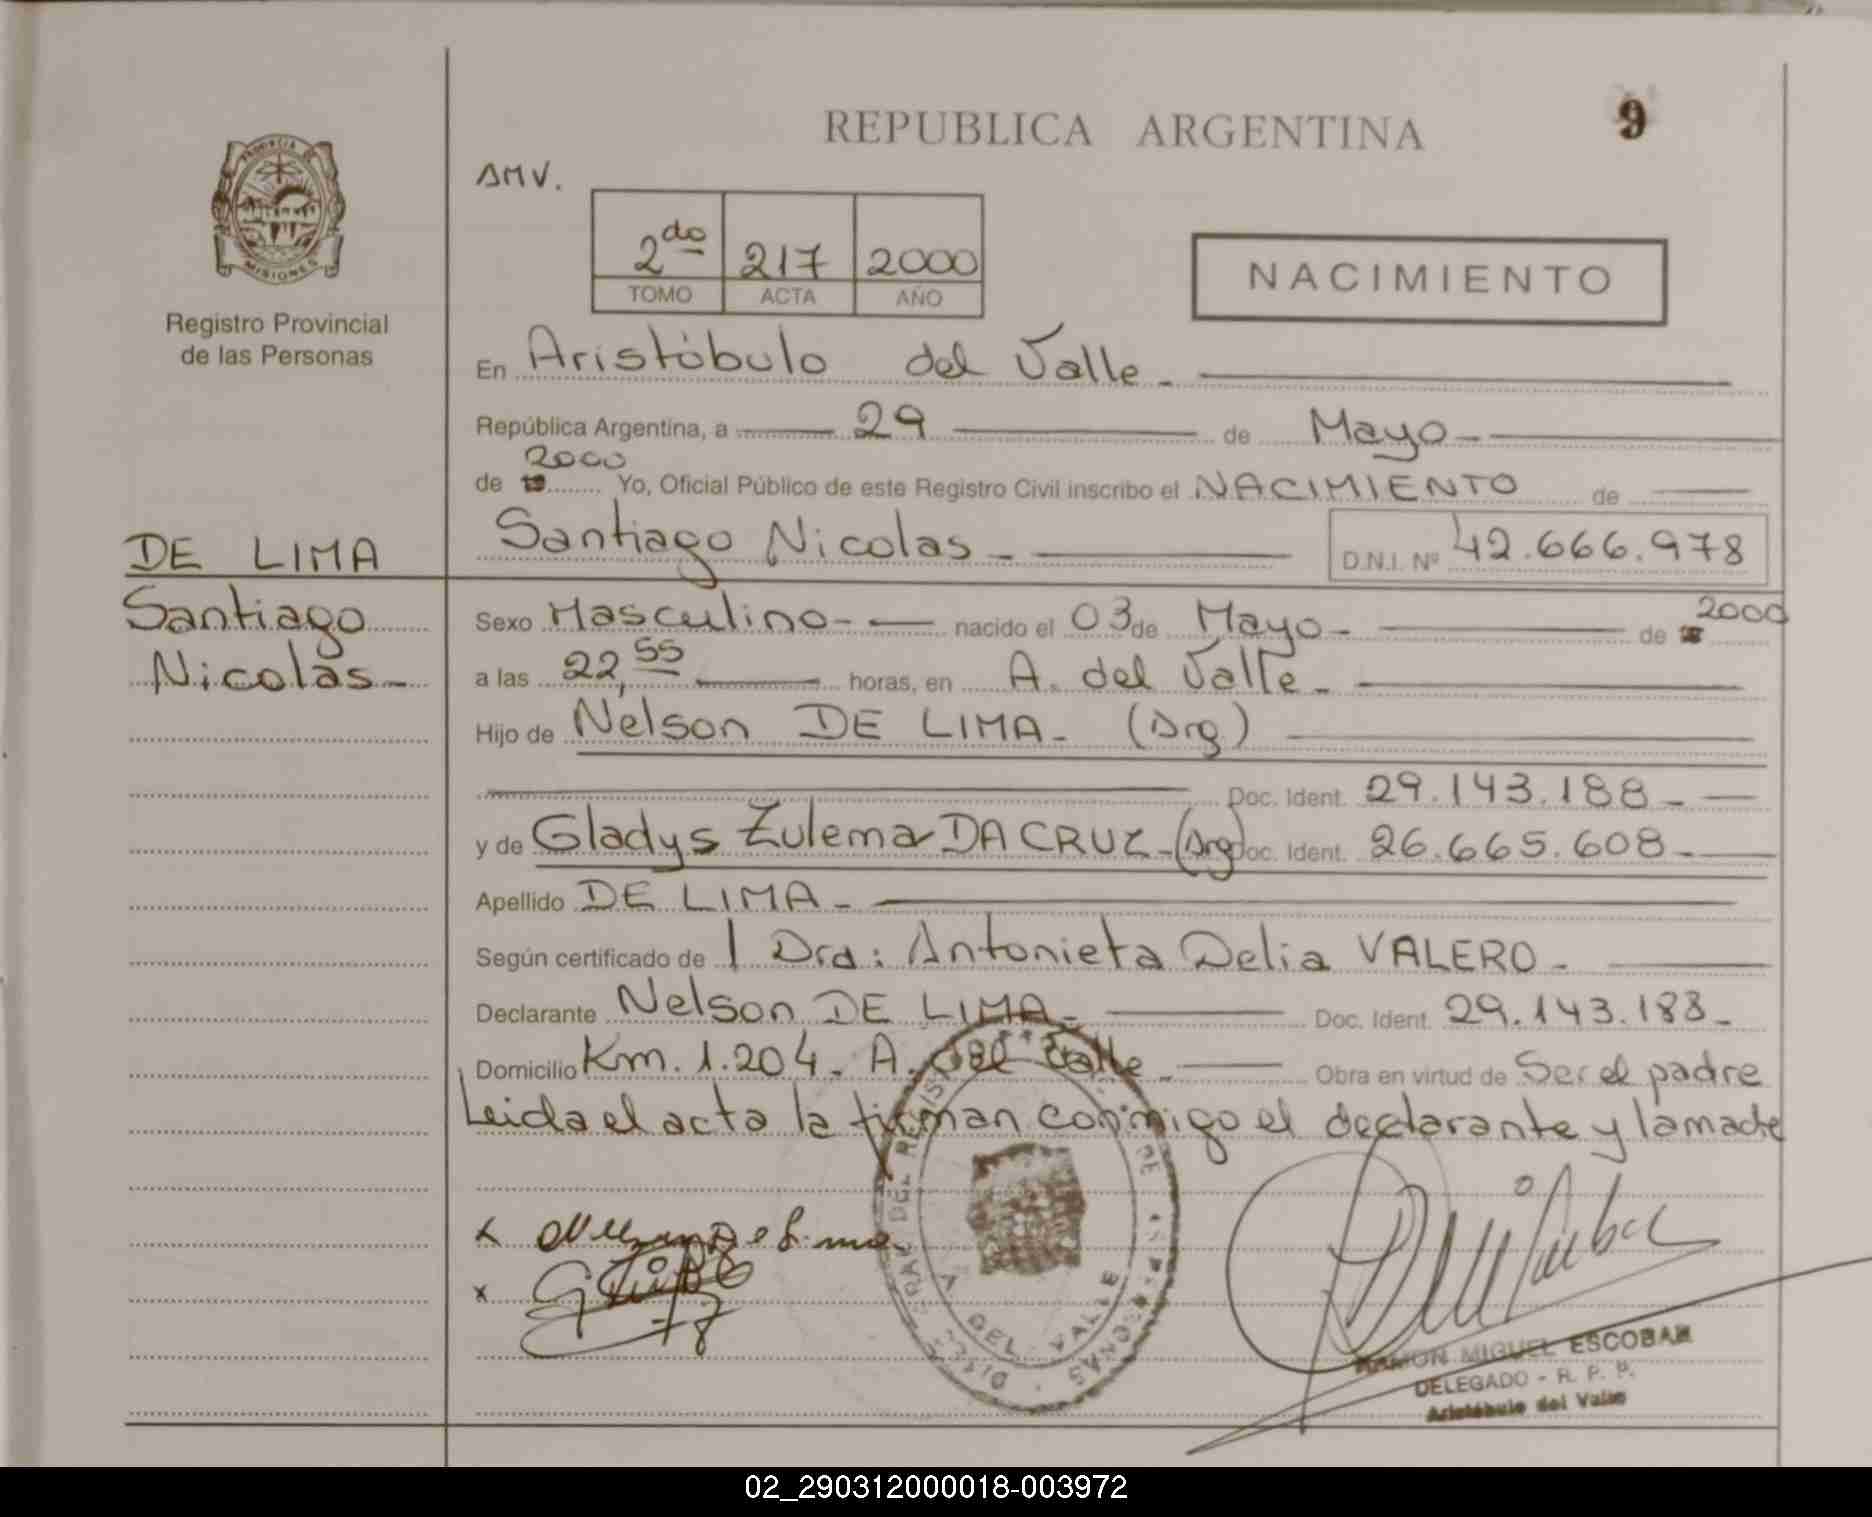 REPUBLICA ARGENTINA
9
PROVINCIA DE
MISIONES
Registro Provincial
de las Personas
AMV.
2do 217 2000
TOMO ACTA AÑO
NACIMIENTO
En Aristóbulo del Valle.
República Argentina, a 29 de Mayo
de 19 2000 Yo, Oficial Público de este Registro Civil inscribo el NACIMIENTO de
Santiago Nicolas D.N.I. Nº 42.666.978
DE LIMA
Santiago
Nicolas
Sexo Masculino nacido el 03 de Mayo de 2000
a las 22,55 horas, en A. del Valle
Hijo de Nelson DE LIMA (Arg)
Doc. Ident. 29.143.188
y de Gladys Zulema DA CRUZ (Arg) Doc. Ident. 26.665.608
Apellido DE LIMA
Según certificado de 1 Dra: Antonieta Delia VALERO
Declarante Nelson DE LIMA Doc. Ident. 29.143.188
Domicilio Km. 1.204. A. del Valle Obra en virtud de Ser el padre
Leida el acta la firman conmigo el declarante y la madre
x
x
A. DEL VALLE
RAMON MIGUEL ESCOBAR
DELEGADO - R. P. P.
Aristóbulo del Valle
02_290312000018-003972